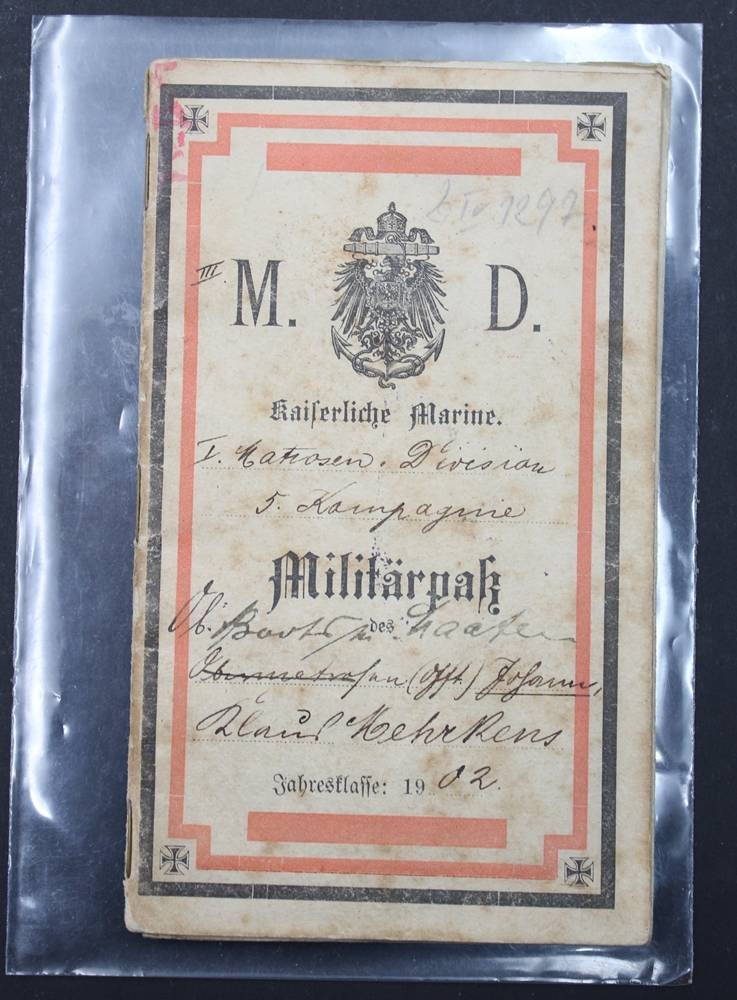 1297
III M. D.
Kaiserliche Marine.
I. Matrosen. Division
5. Kompagnie
Militärpaß
Ob. Bootsm des Maaten
Obermatrosen (Offt.) Johann,
Klaus Mehrkens
Jahresklasse: 1902.